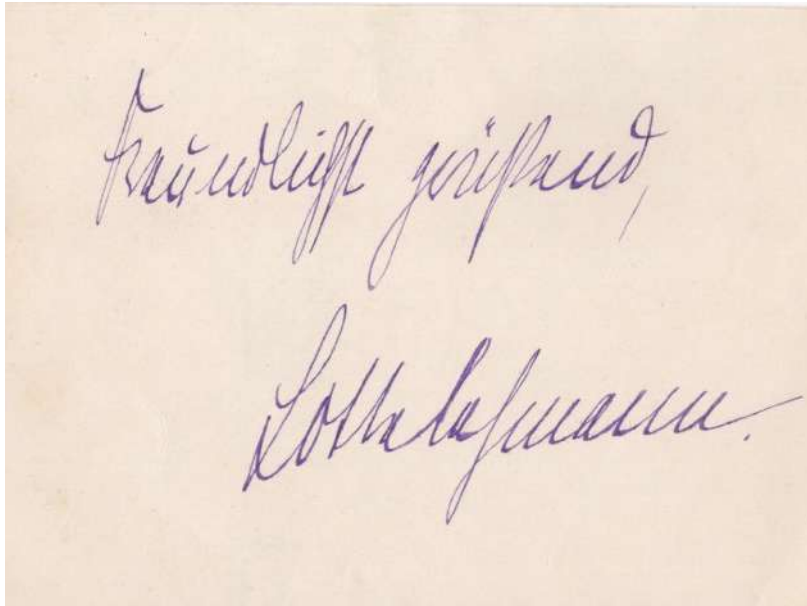 Freundlichst grüßend,
Lotte Lehmann.